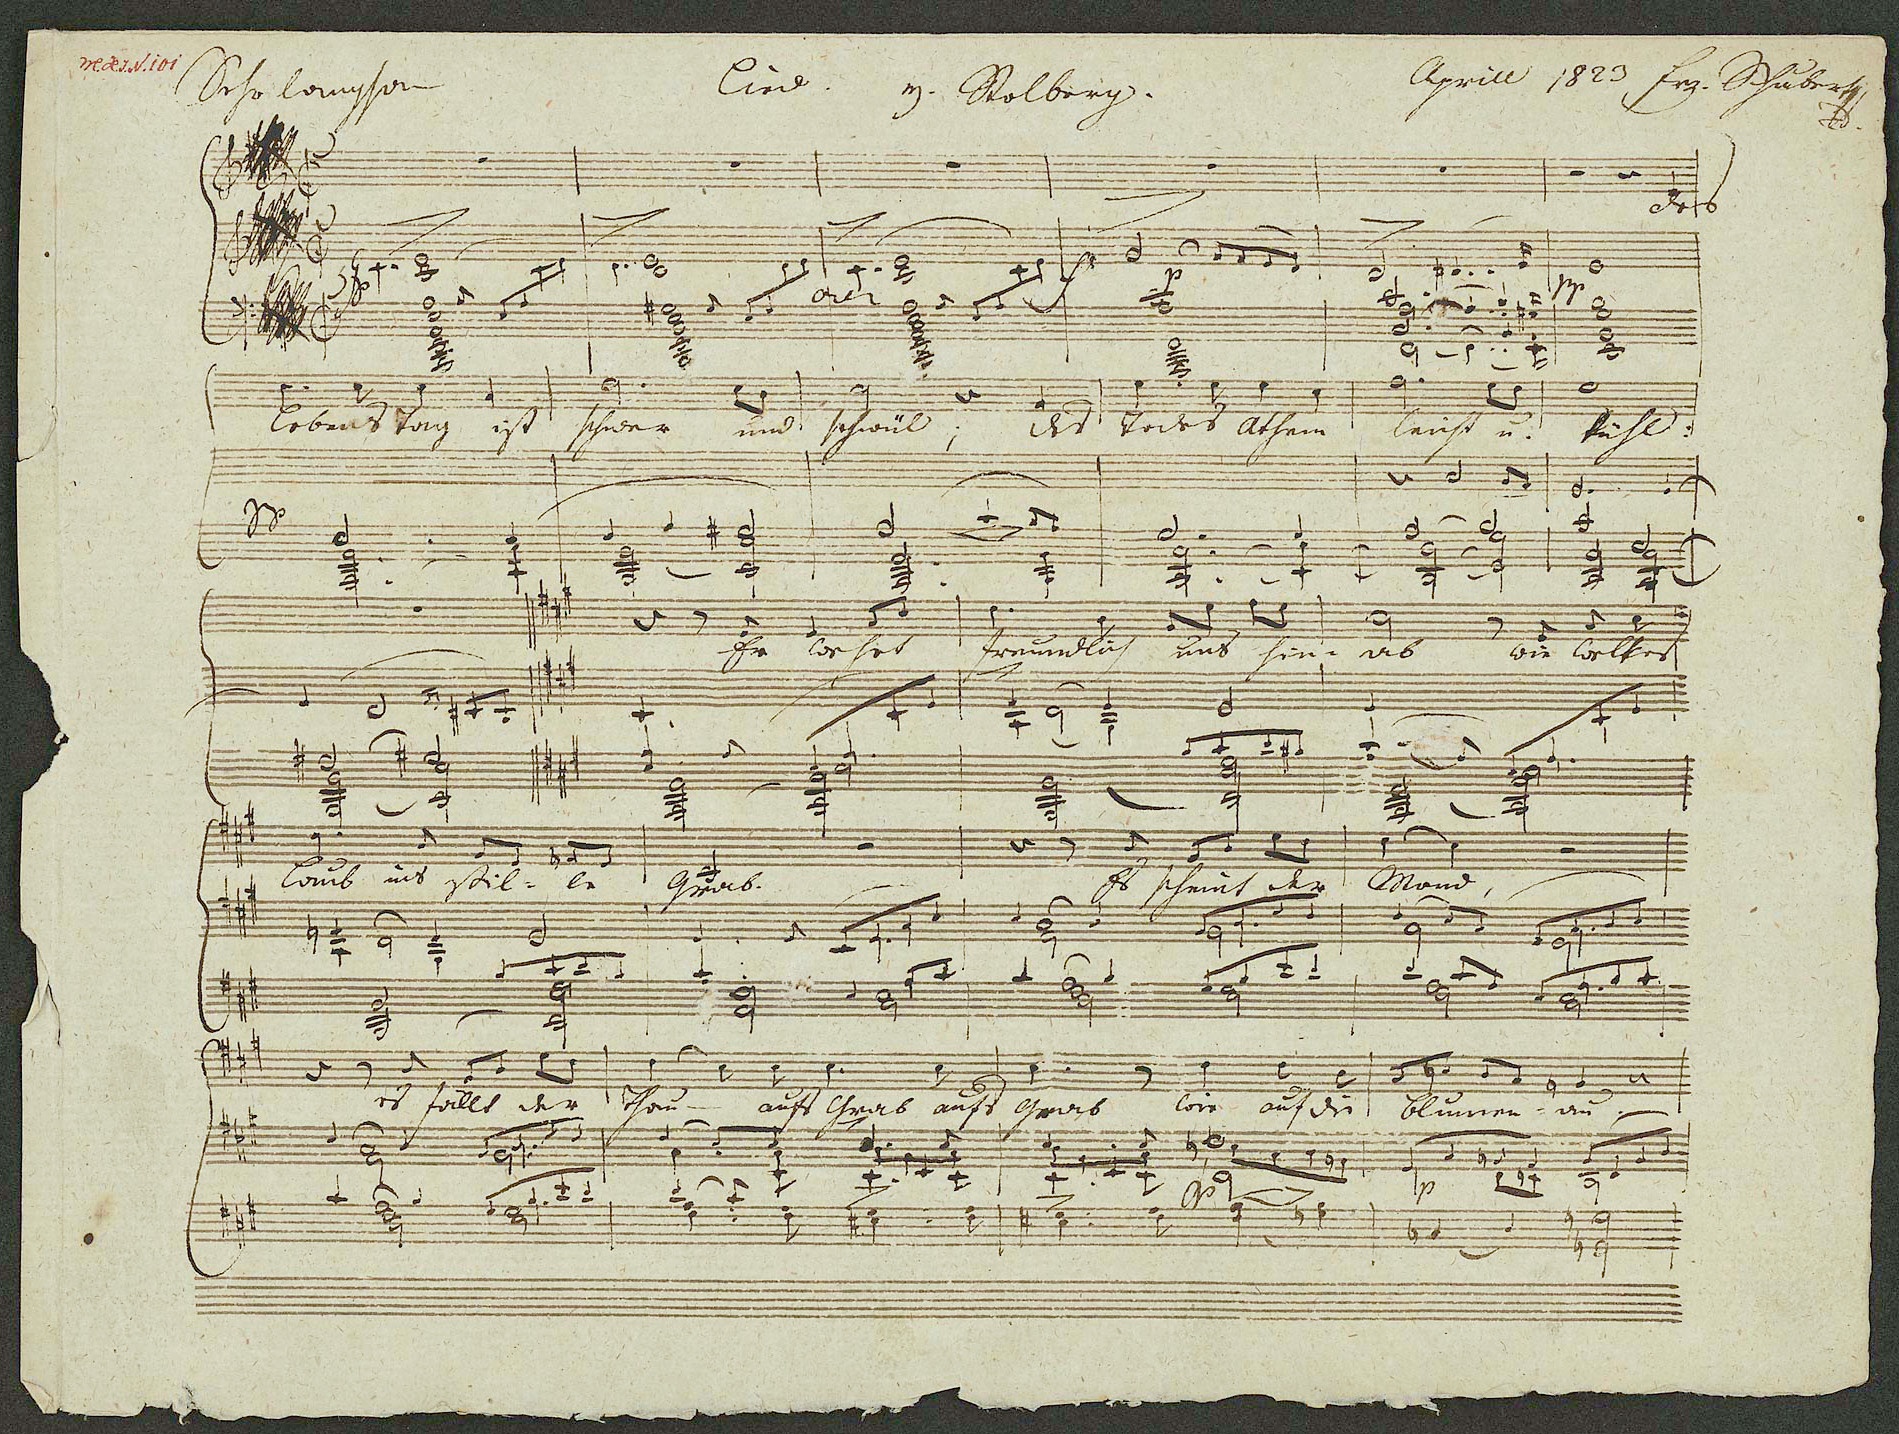 Sehr langsam Lied. v. Stolberg. Aprill 1823 Frz. Schubert
des
pp
p
pp
Lebens Tag ist schwer und schwül; des Todes Athem leicht u. kühl:
pp
Er wehet freundlich uns hin- ab wie welkes
Laub ins stil- le Grab. Es scheint der Mond,
es fällt der Thau aufs Grab aufs Grab wie auf die Blumen- au.
p